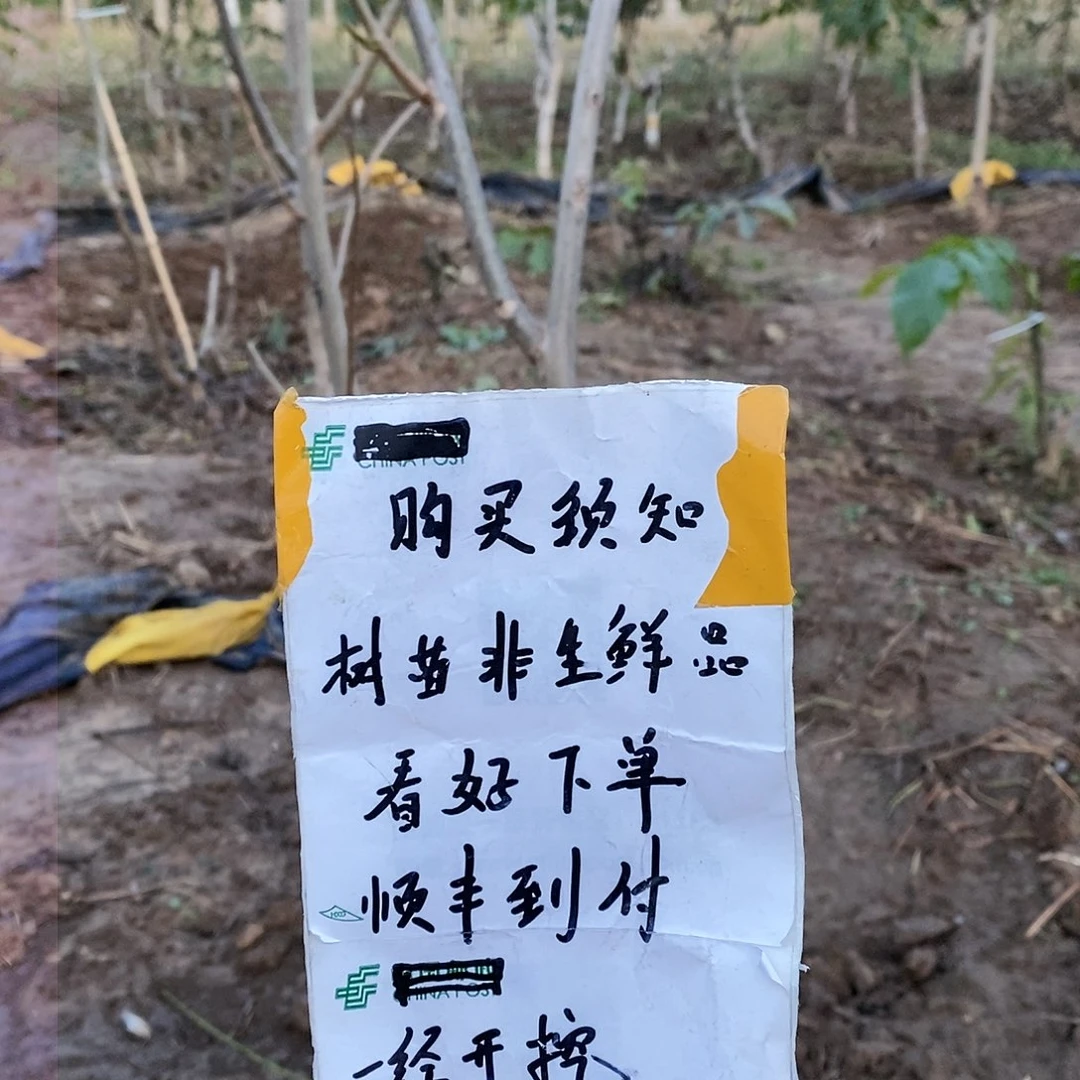 CHINA POST
购买须知
树苗非生鲜品
看好下单
顺丰到付
CHINA POST
一经开挖